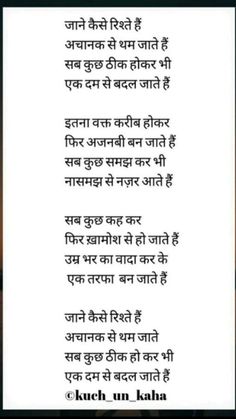 जाने कैसे रिश्ते हैं
अचानक से थम जाते हैं
सब कुछ ठीक होकर भी
एक दम से बदल जाते हैं
इतना वक्त करीब होकर
फिर अजनबी बन जाते हैं
सब कुछ समझ कर भी
नासमझ से नज़र आते हैं
सब कुछ कह कर
फिर ख़ामोश से हो जाते हैं
उम्र भर का वादा कर के
एक तरफा बन जाते हैं
जाने कैसे रिश्ते हैं
अचानक से थम जाते
सब कुछ ठीक हो कर भी
एक दम से बदल जाते हैं
©kuch_un_kaha